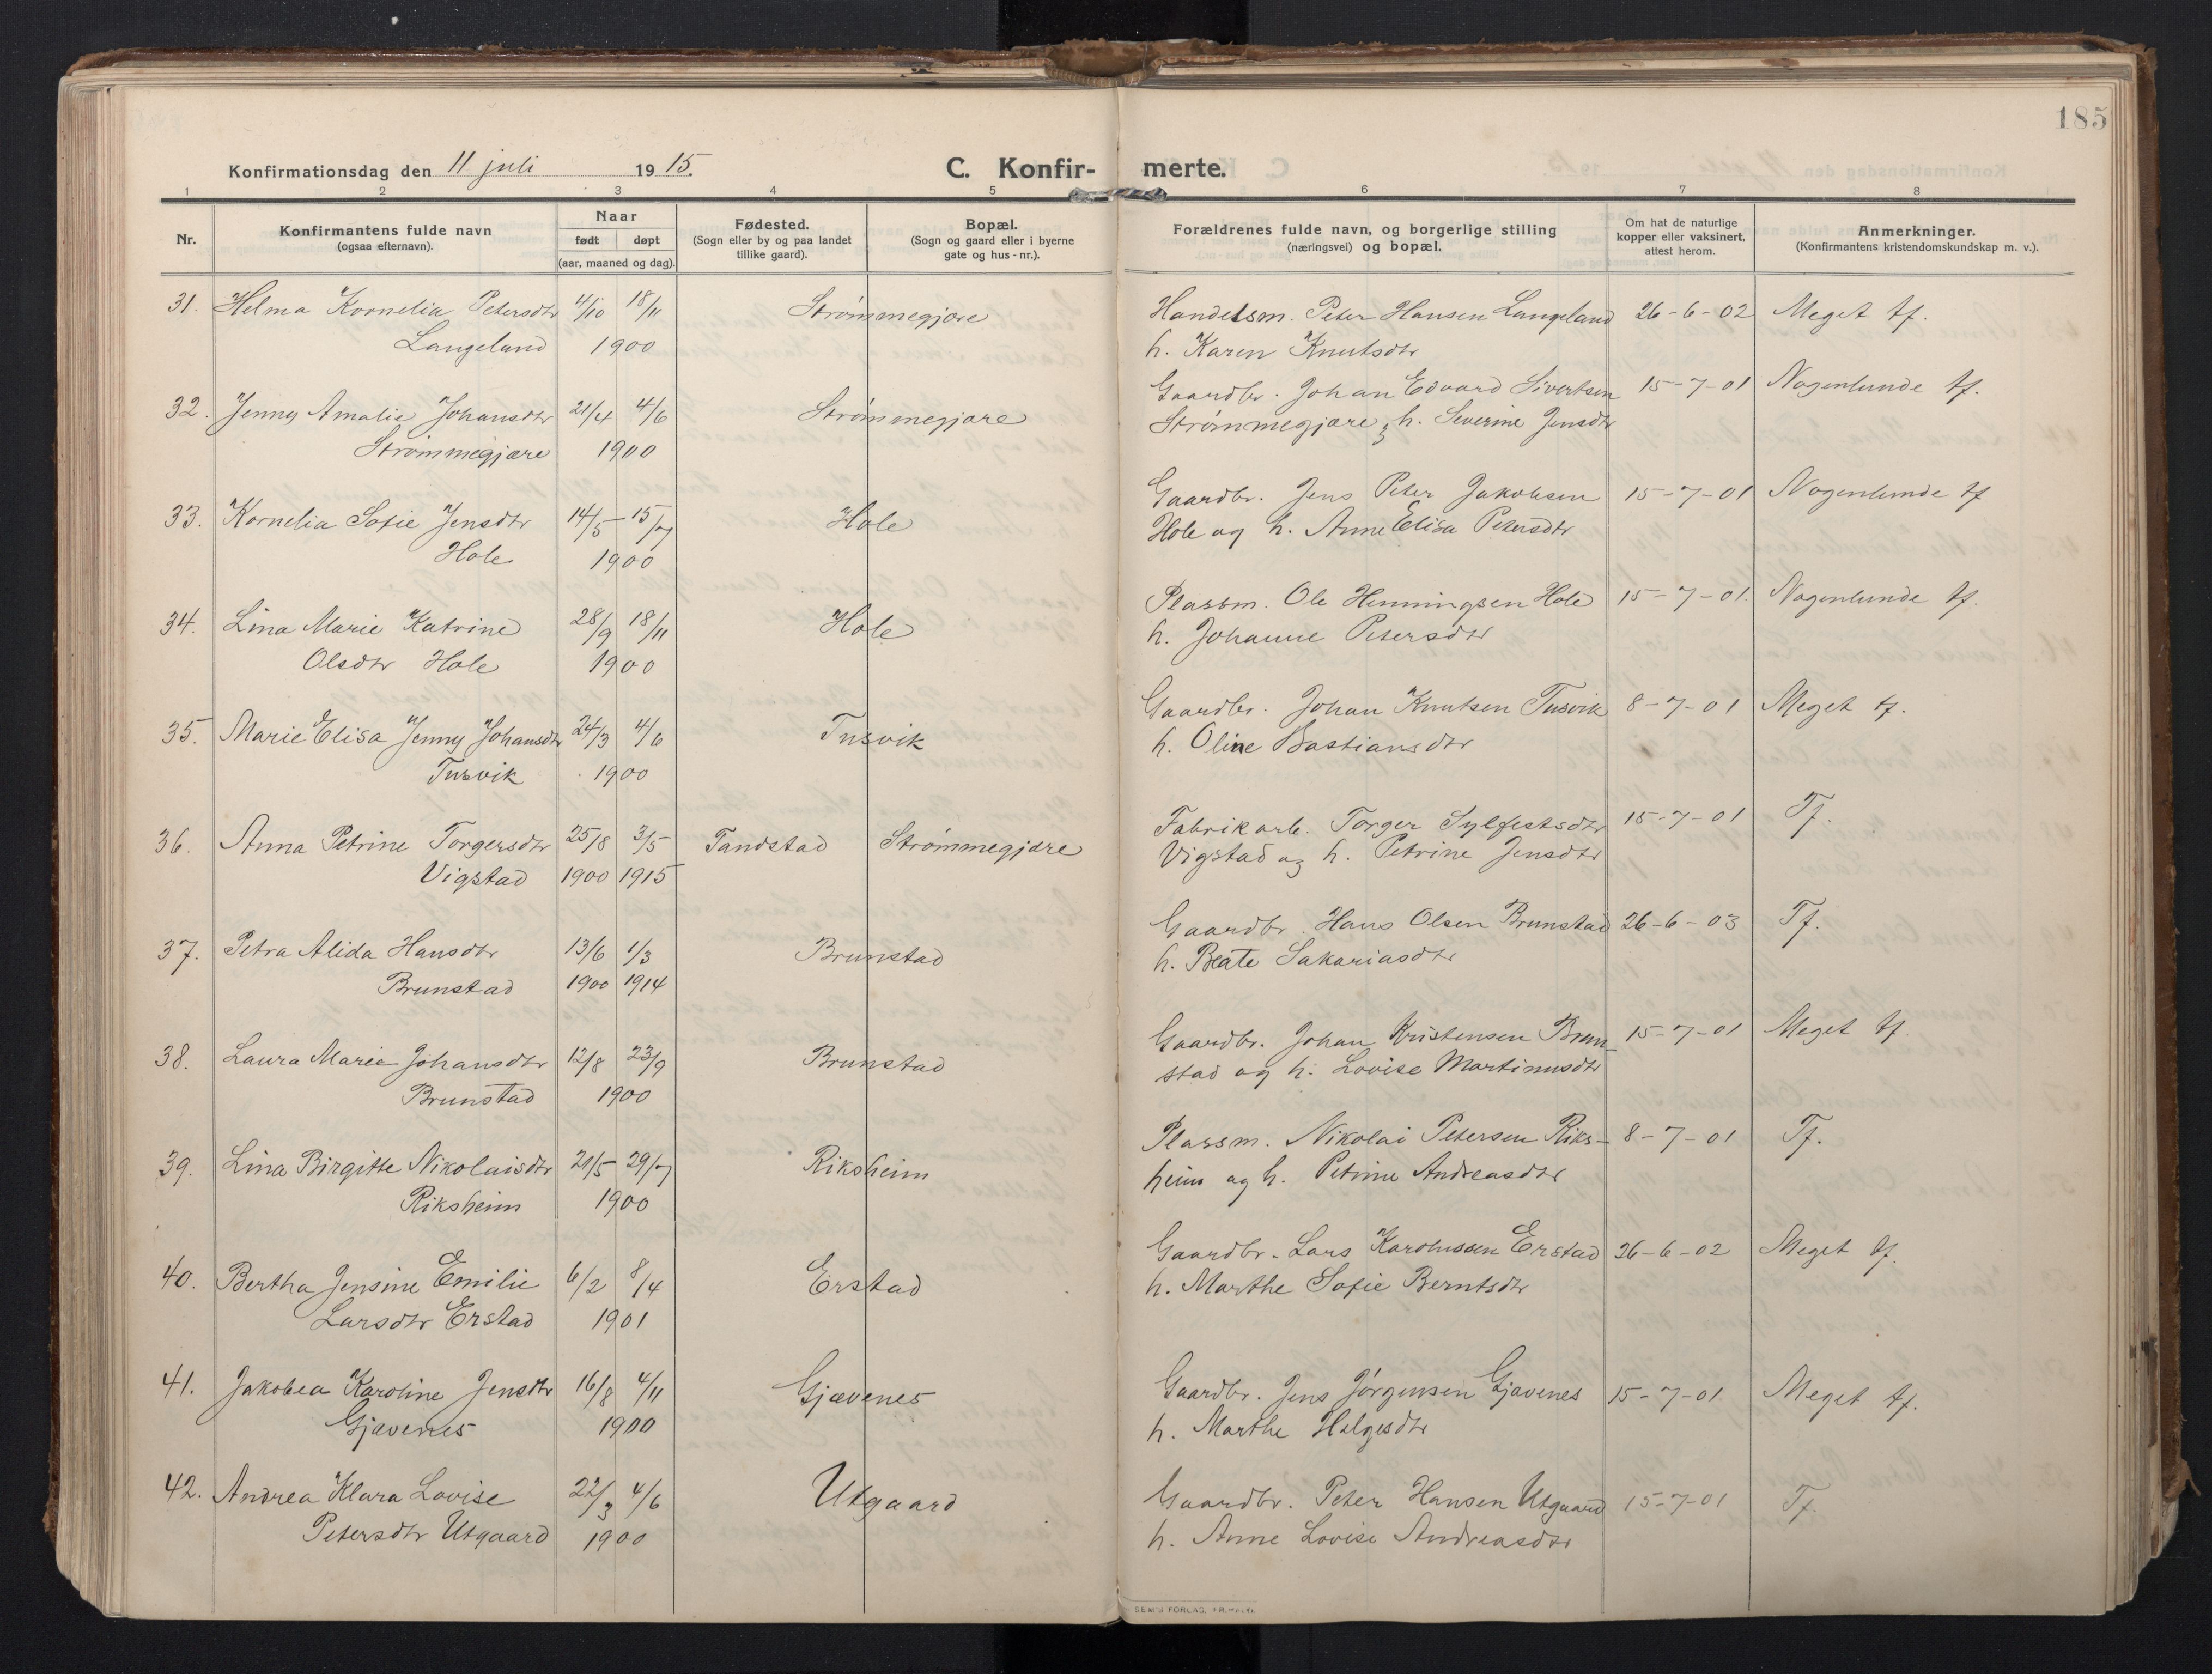 185
Konfirmationsdag den 11 juli 1915. C. Konfir- merte.
1 2 3 4 5 6 7 8
Nr.
Konfirmantens fulde navn
(ogsaa efternavn).
Naar
født døpt
(aar, maaned og dag).
Fødested.
(Sogn eller by og paa landet
tillike gaard).
Bopæl.
(Sogn og gaard eller i byerne
gate og hus-nr.).
Forældrenes fulde navn, og borgerlige stilling
(næringsvei) og bopæl.
Om hat de naturlige
kopper eller vaksinert,
attest herom.
Anmerkninger.
(Konfirmantens kristendomskundskap m. v.).
31. Helma Kornelia Petersdtr 4/10 18/11 Strømmegjære Handelsm. Peter Hansen Langeland 26-6-02 Meget tf.
Langeland 1900 h. Karen Knutsdtr
32. Jenny Amalie Johansdtr 21/4 4/6 Strømmegjære Gaardbr. Johan Edvard Sivertsen 15-7-01 Nogenlunde tf.
Strømmegjære 1900 Strømmegjære, h. Severine Jensdtr
33. Kornelia Sofie Jensdtr 14/5 15/7 Hole Gaardbr. Jens Peter Jakobsen 15-7-01 Nogenlunde tf
Hole 1900 Hole og h. Anne Elisa Petersdtr
34. Lina Marie Katrine 28/9 18/11 Hole Plassm. Ole Henningsen Hole 15-7-01. Nogenlunde tf.
Olsdtr Hole 1900 h. Johanne Petersdtr
35. Marie Elisa Jenny Johansdtr 24/3 4/6 Tusvik Gaardbr. Johan Knutsen Tusvik 8-7-01 Meget tf.
Tusvik 1900 h. Oline Bastiansdtr
36. Anna Petrine Torgersdtr 25/8 3/5 Tandstad Strømmegjære Fabrikarb. Torger Sylfestsdtr 15-7-01 Tf.
Vigstad 1900 1915 Vigstad og h. Petrine Jensdtr
37. Petra Alida Hansdtr 13/6 1/3 Brunstad Gaardbr. Hans Olsen Brunstad 26-6-03 Tf.
Brunstad 1900 1914 h. Beate Sakariasdtr
38. Laura Marie Johansdtr 12/8 23/9 Brunstad Gaardbr. Johan Kristensen Brun- 15-7-01 Meget tf.
Brunstad 1900 stad og h. Lovise Martinusdtr
39. Lina Birgitte Nikolaisdtr 21/5 29/7 Riksheim Plassm. Nikolai Petersen Riks- 8-7-01 Tf.
Riksheim 1900 heim og h. Petrine Andreasdtr
40. Bertha Jensine Emilie 6/2 8/4 Erstad Gaardbr. Lars Karolussen Erstad 26-6-02 Meget tf.
Larsdtr Erstad 1901 h. Marthe Sofie Berntsdtr
41. Jakobea Karoline Jensdtr 16/8 4/11 Gjævenes Gaardbr. Jens Jørgensen Gjævenes 15-7-01 Meget tf.
Gjævenes 1900 h. Marthe Helgesdtr
42. Andrea Klara Lovise 22/3 4/6 Utgaard Gaardbr. Peter Hansen Utgaard 15-7-01 Tf.
Petersdtr Utgaard 1900 h. Anne Lovise Andreasdtr
SEM'S FORLAG, FR.HALD.